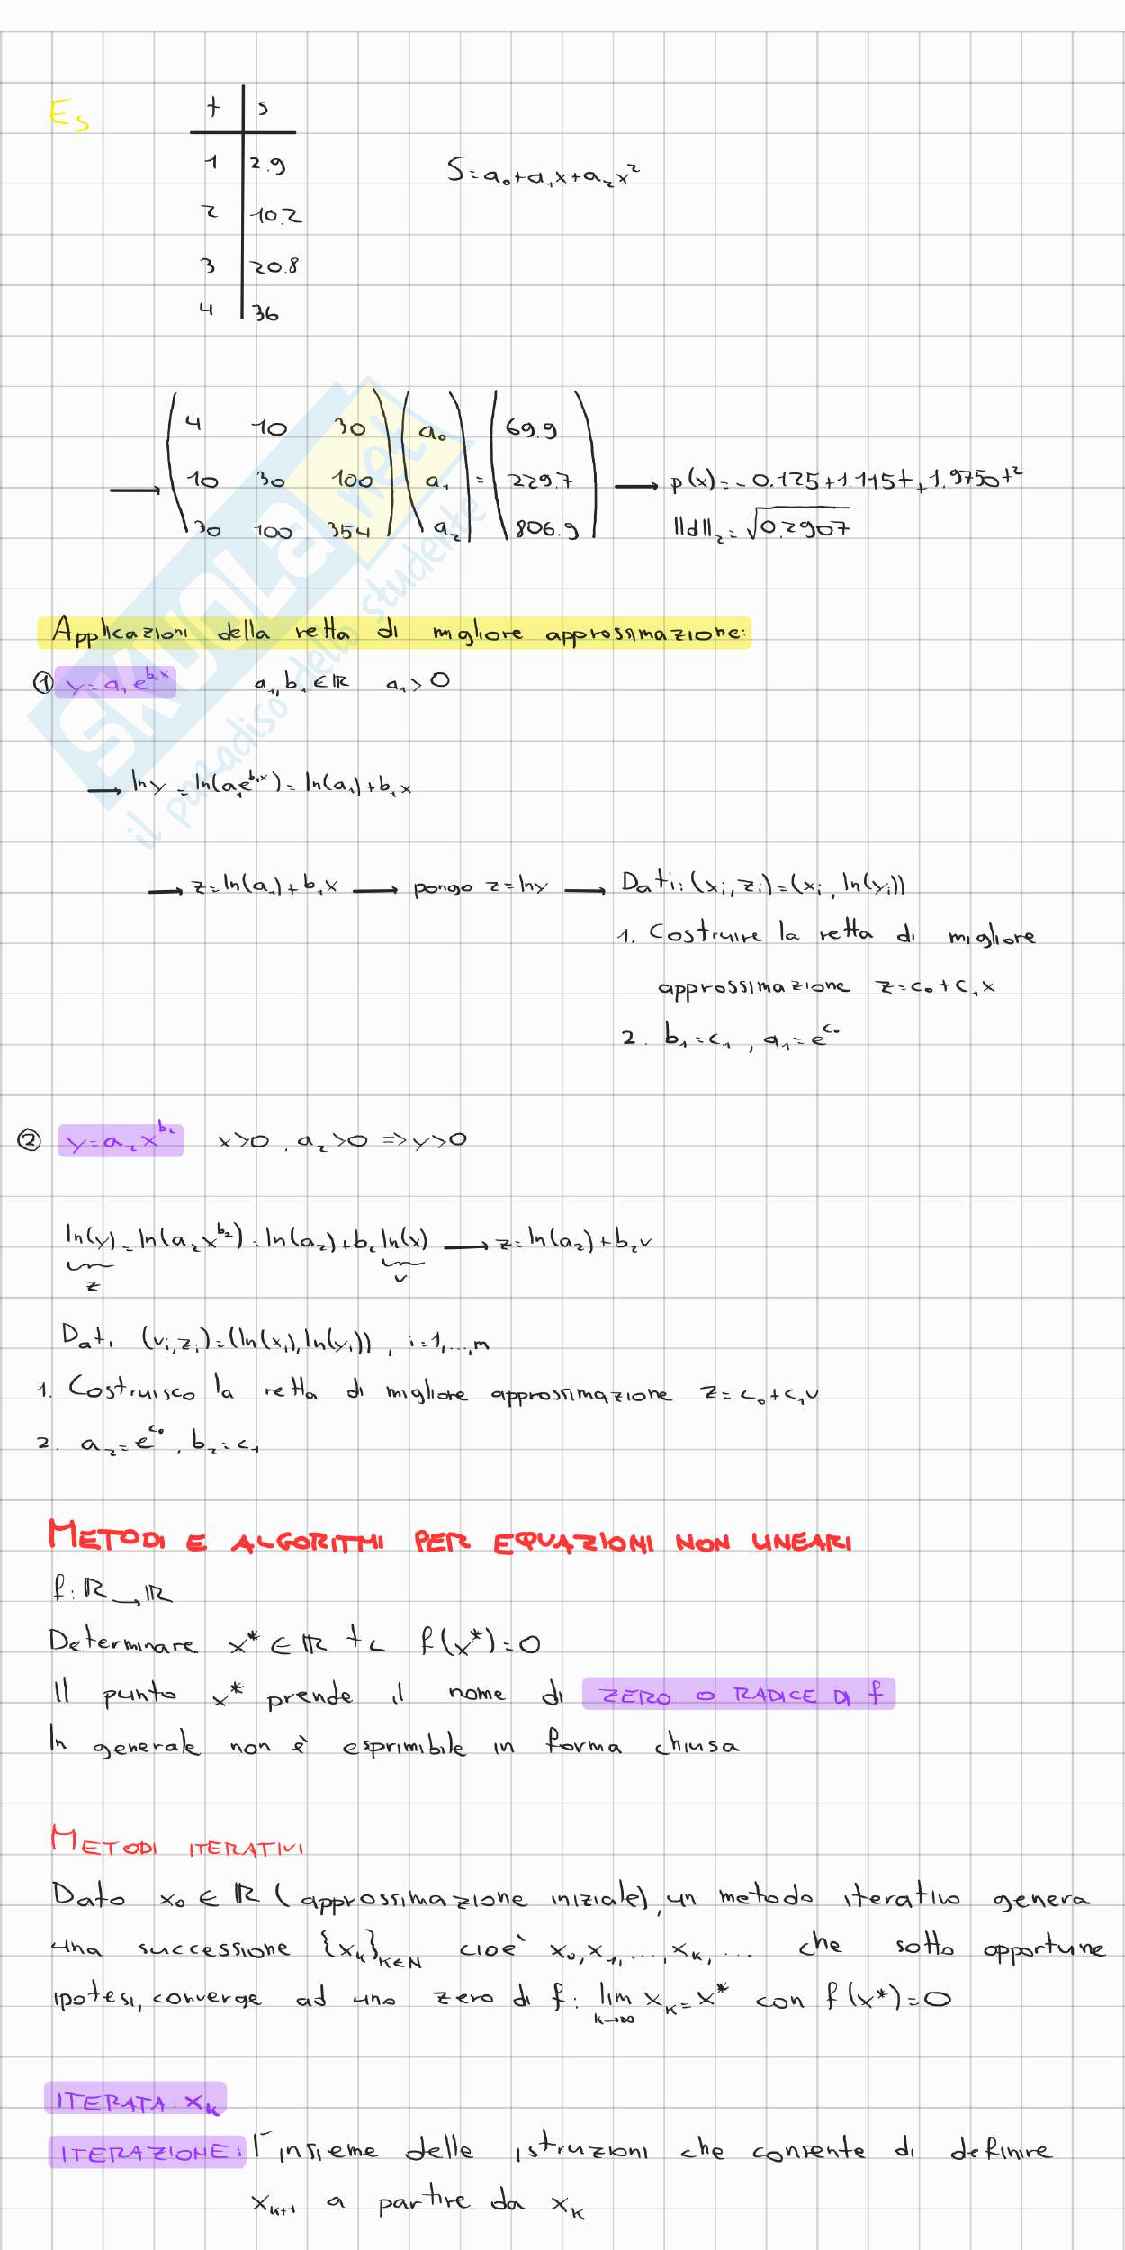 Es
t | s
1 | 2.9
2 | 10.2
3 | 20.8
4 | 36
S=a₀+a₁x+a₂x²
→ (4 10 30; 10 30 100; 30 100 354) (a₀; a₁; a₂) = (69.9; 229.7; 806.9) → p(x)=-0.125+1.115t+1.9750t²
||d||₂=√0.2907
Applicazioni della retta di migliore approssimazione:
① y=a₁e^{b₁x} a₁,b₁∈ℝ a₁>0
→ ln y = ln(a₁e^{b₁x}) = ln(a₁)+b₁x
→ z=ln(a₁)+b₁x → pongo z=lny → Dati: (xᵢ,zᵢ)=(xᵢ, ln(yᵢ))
1. Costruire la retta di migliore
approssimazione z=c₀+c₁x
2. b₁=c₁, a₁=e^{c₀}
② y=a₂x^{b₂} x>0, a₂>0 =>y>0
ln(y)=ln(a₂x^{b₂})=ln(a₂)+b₂ln(x) → z=ln(a₂)+b₂v
z v
Dati (vᵢ,zᵢ)=(ln(xᵢ),ln(yᵢ)), i=1,...,m
1. Costruisco la retta di migliore approssimazione z=c₀+c₁v
2. a₂=e^{c₀}, b₂=c₁
METODI E ALGORITMI PER EQUAZIONI NON LINEARI
f:ℝ→ℝ
Determinare x*∈ℝ tc f(x*)=0
Il punto x* prende il nome di ZERO O RADICE DI f
In generale non è esprimibile in forma chiusa
METODI ITERATIVI
Dato x₀∈ℝ (approssimazione iniziale), un metodo iterativo genera
una successione {xₖ}ₖ∈ℕ cioè x₀,x₁,...,xₖ,... che sotto opportune
ipotesi, converge ad uno zero di f: lim k→∞ xₖ=x* con f(x*)=0
ITERATA xₖ
ITERAZIONE: l'insieme delle istruzioni che consente di definire
xₖ₊₁ a partire da xₖ
SKUOLA.net
il paradiso dello studente